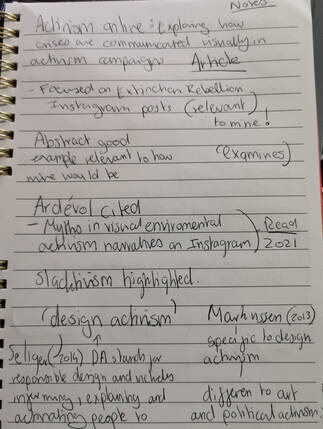 Notes
Activism online: Exploring how
crises are communicated visually in
activism campaigns Article
- Focused on Extinction Rebellion
Instagram posts (relevant)
to me!
Abstract good (examines)
example relevant to how
mine would be
Ardévol cited
- Myths in visual enviromental Read
activism narratives on Instagram) 2021
Slacktivism highlighted.
'design activism' Markussen (2013)
specific to design
activism
Seliger (2014) DA stands for
responsible design and includes
informing, explaining and
activating people to
differen to art
and political activism.